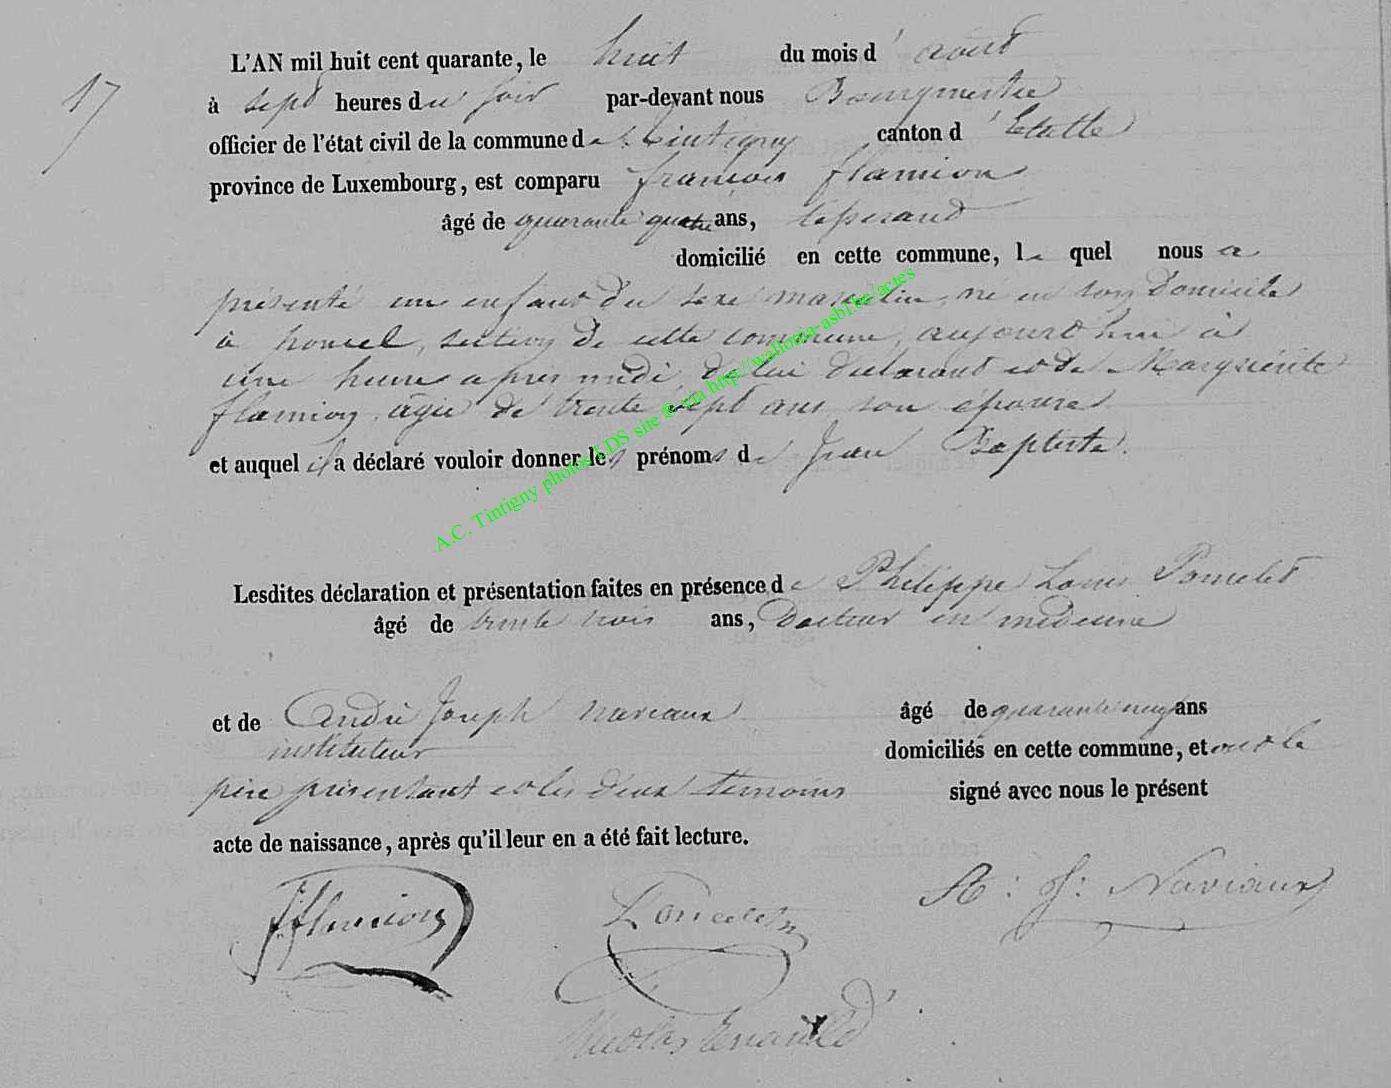 17
L'AN mil huit cent quarante, le huit du mois d'août
à sept heures du soir par-devant nous Bourgmestre
officier de l'état civil de la commune de Tintigny canton d'Etalle
province de Luxembourg, est comparu françois flamion
âgé de quarante quatre ans, tisserand
domicilié en cette commune, le quel nous a
présenté un enfant du sexe masculin, né en son domicile
à poncel, section de cette commune, aujourd'hui à
une heure après midi, de lui déclarant et de Marguérite
flamion, âgée de trente sept ans son épouse
et auquel il a déclaré vouloir donner les prénoms de Jean Baptiste.
Lesdites déclaration et présentation faites en présence de Philippe Louis Poncelet
âgé de trente trois ans, docteur en médecine
et de André Joseph naviaux âgé de quarante neuf ans
instituteur domiciliés en cette commune, et ont le
père présentant et les deux témoins signé avec nous le présent
acte de naissance, après qu'il leur en a été fait lecture.
fflamion Poncelet A: J: Naviaux
Nicolas
A.C. Tintigny photos LDS site @ via http://wallonia-asbl.be/actes